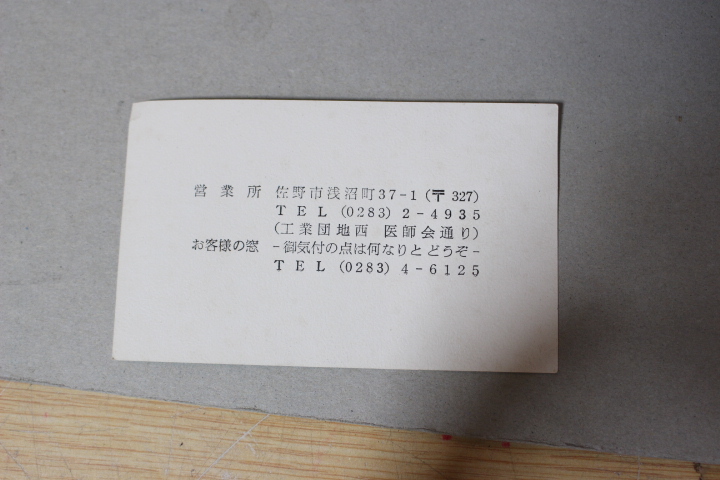 営業所 佐野市浅沼町37-1(〒327)
TEL (0283) 2-4935
(工業団地西 医師会通り)
お客様の窓 -御気付の点は何なりとどうぞ-
TEL (0283) 4-6125